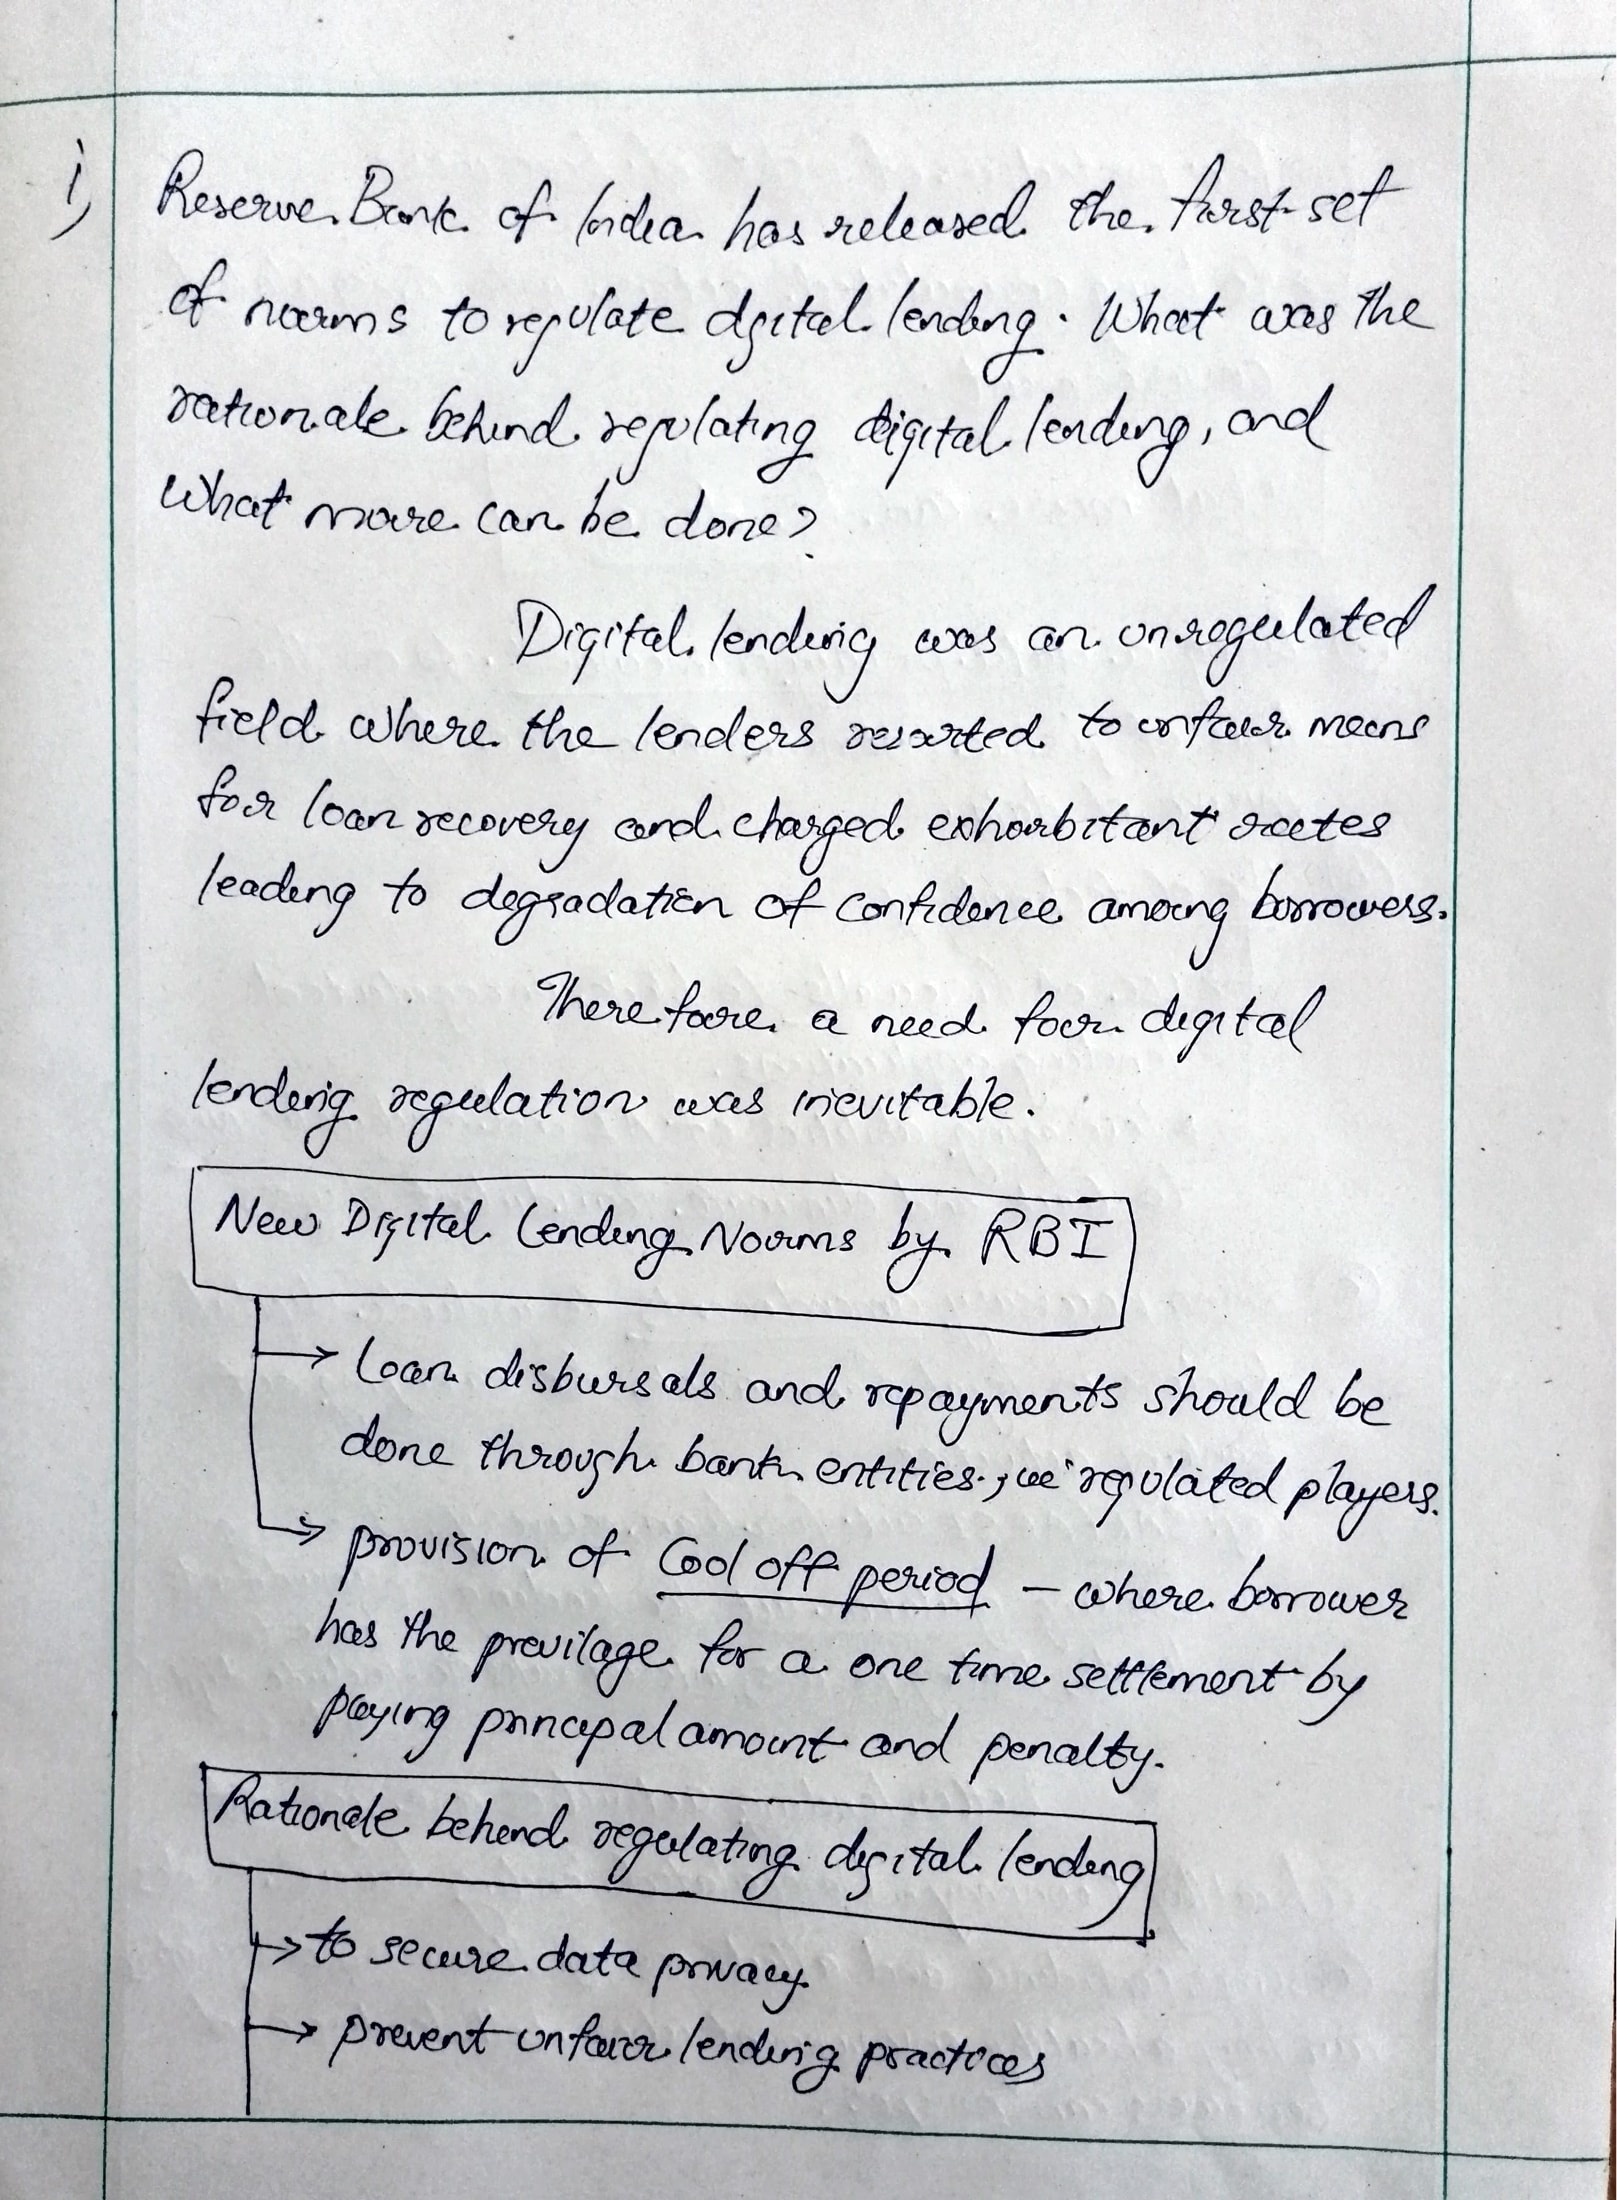 i)
Reserve Bank of India has released the first set
of norms to regulate dgital lending. What was the
rationale behind regulating digital lending, and
what more can be done?
Digital lending was an unregulated
field where the lenders resorted to unfair means
for loan recovery and charged exhorbitant rates
leading to degradation of confidence among borrowers.
Therefore a need for digital
lending regulation was inevitable.
New Digital Lending Norms by RBI
→ Loan disbursals and repayments should be
done through bank entities, ie regulated players.
→ provision of Cool off period – where borrower
has the previlage for a one time settlement by
paying principal amount and penalty.
Rationale behind regulating digital lending
→ to secure data privacy
→ prevent unfair lending practices